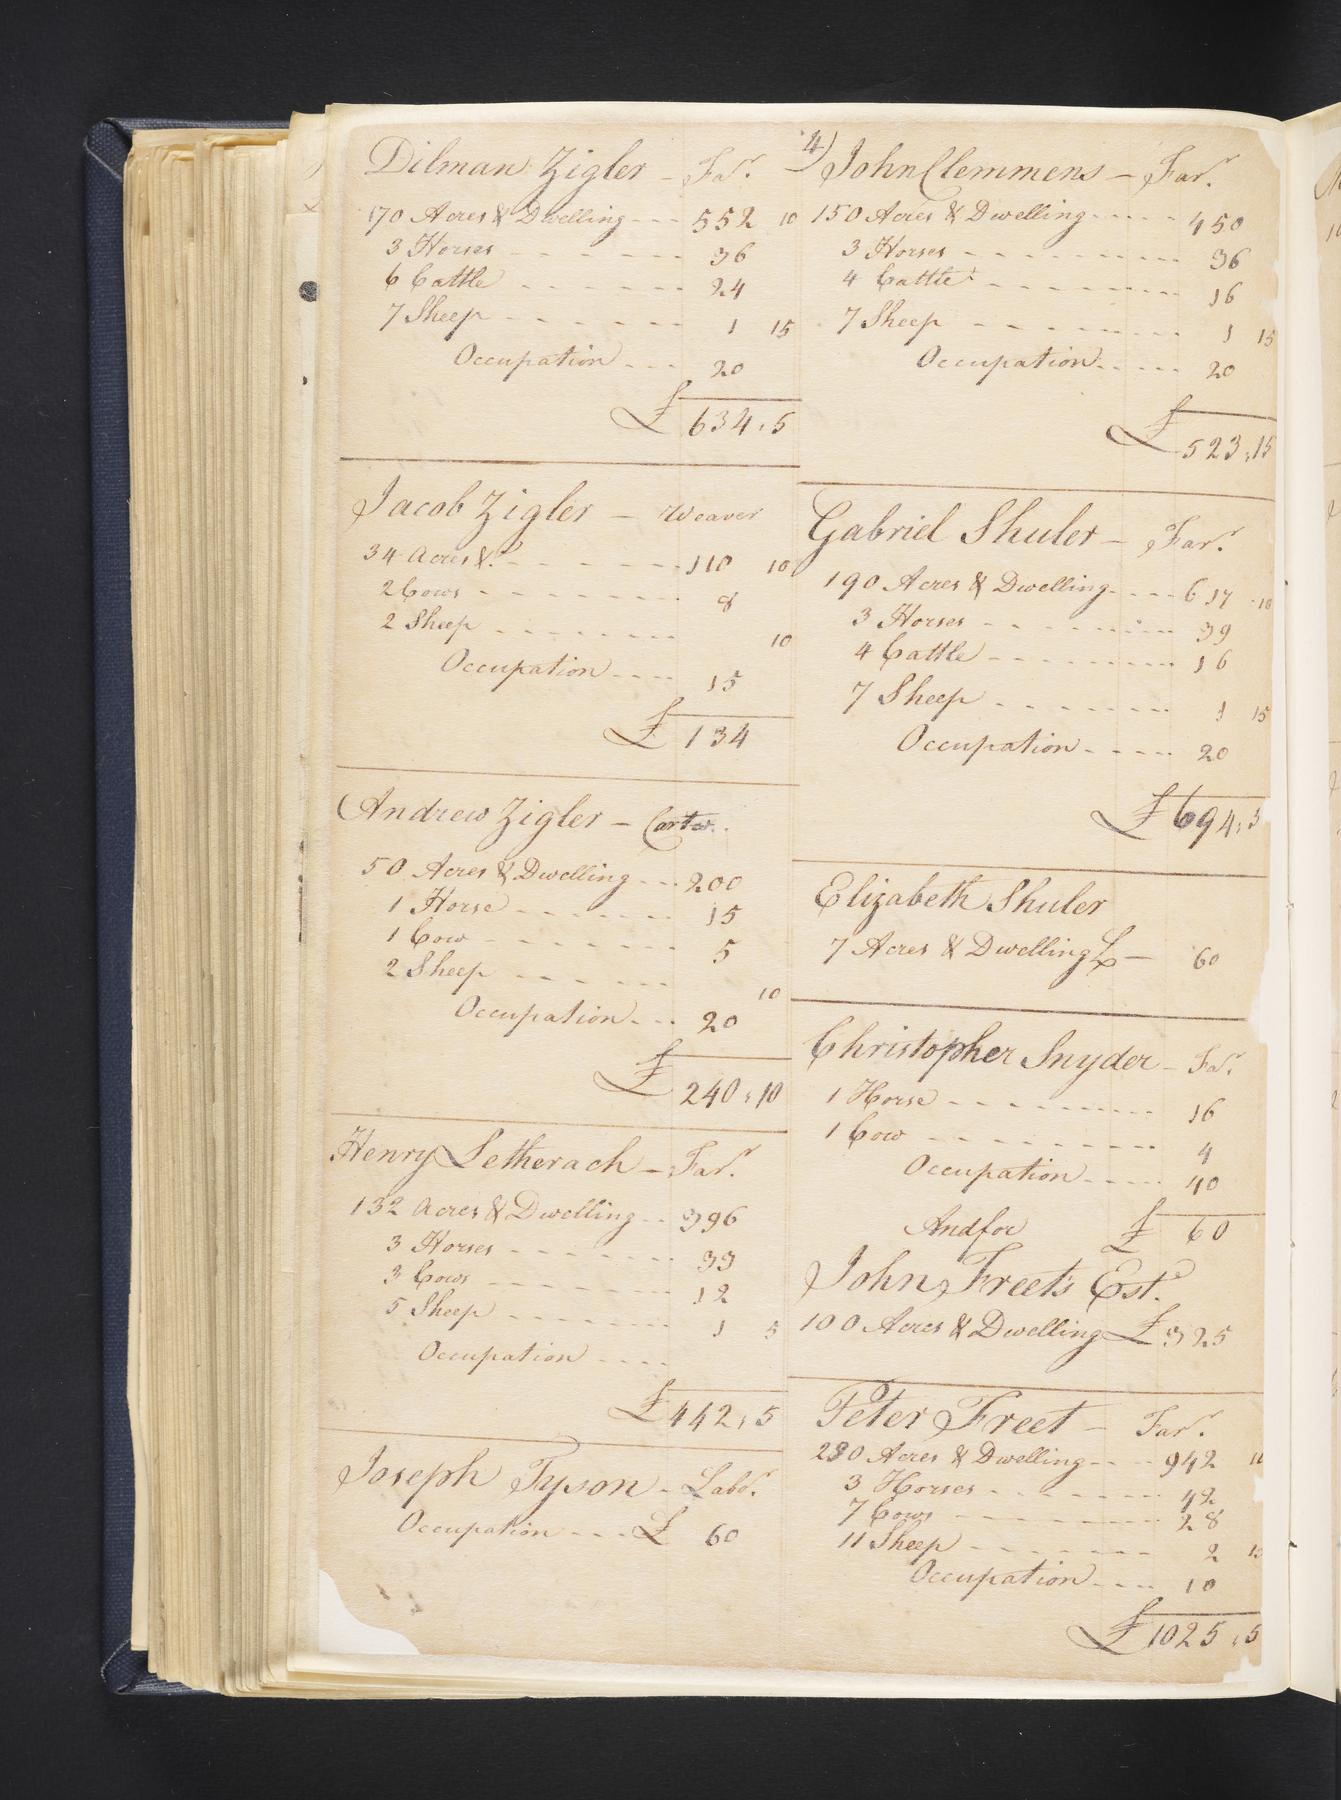 Dilman Zigler - Far.
170 Acres & Dwelling --- 552 10
3 Horses - - - - - - 36
6 Cattle - - - - - - 24
7 Sheep - - - - - - 1 15
Occupation --- 20
£ 634,5
Jacob Zigler - Weaver
34 Acres &c - - - - - 110 10
2 Cows - - - - - - - 8
2 Sheep - - - - - - - 10
Occupation ---- 15
£ 134
Andrew Zigler -
50 Acres & Dwelling --- 200
1 Horse - - - - - - 15
1 Cow - - - - - - - 5
2 Sheep - - - - - - 10
Occupation --- 20
£ 240,10
Henry Letherach - Far.
132 Acres & Dwelling -- 396
3 Horses - - - - - - 33
3 Cows - - - - - - - 12
5 Sheep - - - - - - - 1 5
Occupation ----
£ 442,5
Joseph Tyson - Labr.
Occupation --- £ 60
4) John Clemmens - Far.
150 Acres & Dwelling ----- 450
3 Horses - - - - - - - - 36
4 Cattle - - - - - - - - 16
7 Sheep - - - - - - - - 1 15
Occupation ----- 20
£ 523,15
Gabriel Shuler - Far.
190 Acres & Dwelling ---- 617 10
3 Horses - - - - - - - - 39
4 Cattle - - - - - - - - 16
7 Sheep - - - - - - - 1 15
Occupation ----- 20
£ 694,5
Elizabeth Shuler
7 Acres & Dwelling £ - 60
Christopher Snyder - Far.
1 Horse - - - - - - - - 16
1 Cow - - - - - - - - - 4
Occupation ---- 40
And for £ 60
John Freets Est.
100 Acres & Dwelling £ 325
Peter Freet - Far.
230 Acres & Dwelling --- 942
3 Horses - - - - - - - 42
7 Cows - - - - - - - - 28
11 Sheep - - - - - - - 2
Occupation ---- 10
£ 1025,5